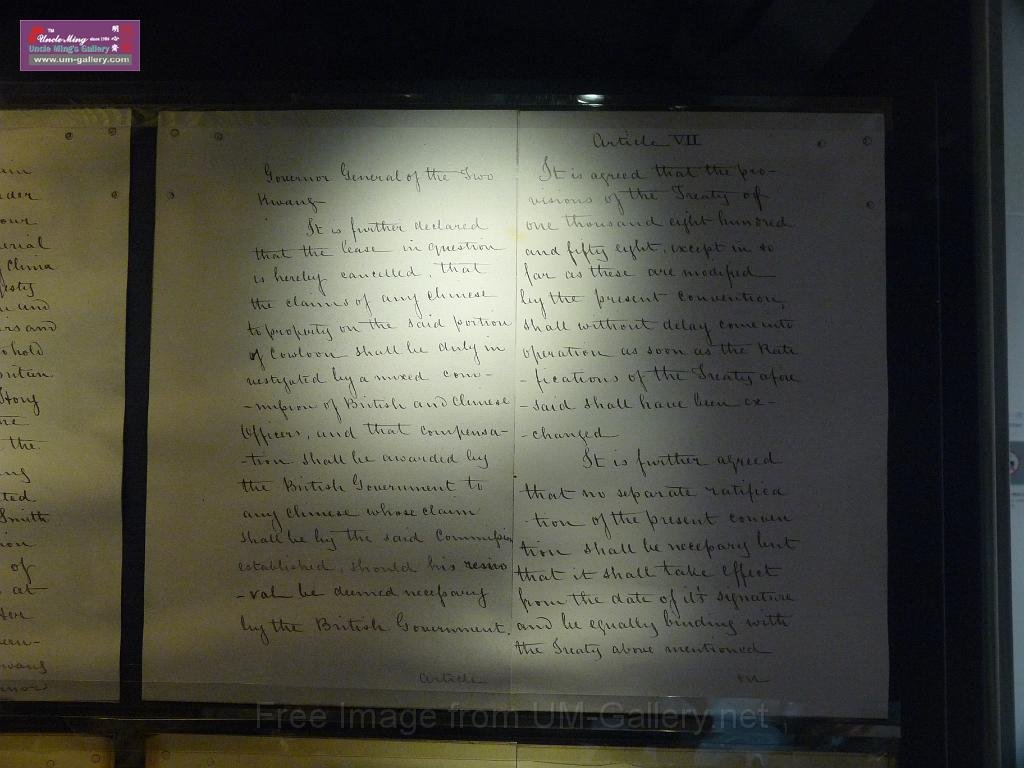 TM
Uncle Ming since 1986
Uncle Ming's Gallery
www.um-gallery.com
ain
nder
our
erial
China
jesty
n and
ers and
ohold
ritan
Hong
ne
the
ng
ted
Smith
ion
of
at
ern-
wang
Governor General of the Two
Kwang
It is further declared
that the lease in question
is hereby cancelled, that
the claims of any Chinese
to property on the said portion
of Cowloon shall be duly in
vestigated by a mixed com-
-mission of British and Chinese
Officers, and that compensa-
-tion shall be awarded by
the British Government to
any Chinese whose claim
shall be by the said Commission
established, should his remo
-val be deemed necessary
by the British Government.
Article
Article VII
It is agreed that the pro-
visions of the Treaty of
one thousand eight hundred
and fifty eight, except in so
far as these are modified
by the present convention,
shall without delay come into
operation as soon as the Rati
-fications of the Treaty afore
-said shall have been ex-
-changed
It is further agreed
that no separate ratifica
-tion of the present conven
tion shall be necessary but
that it shall take effect
from the date of its signature
and be equally binding with
the Treaty above mentioned
on
Free Image from UM-Gallery.net